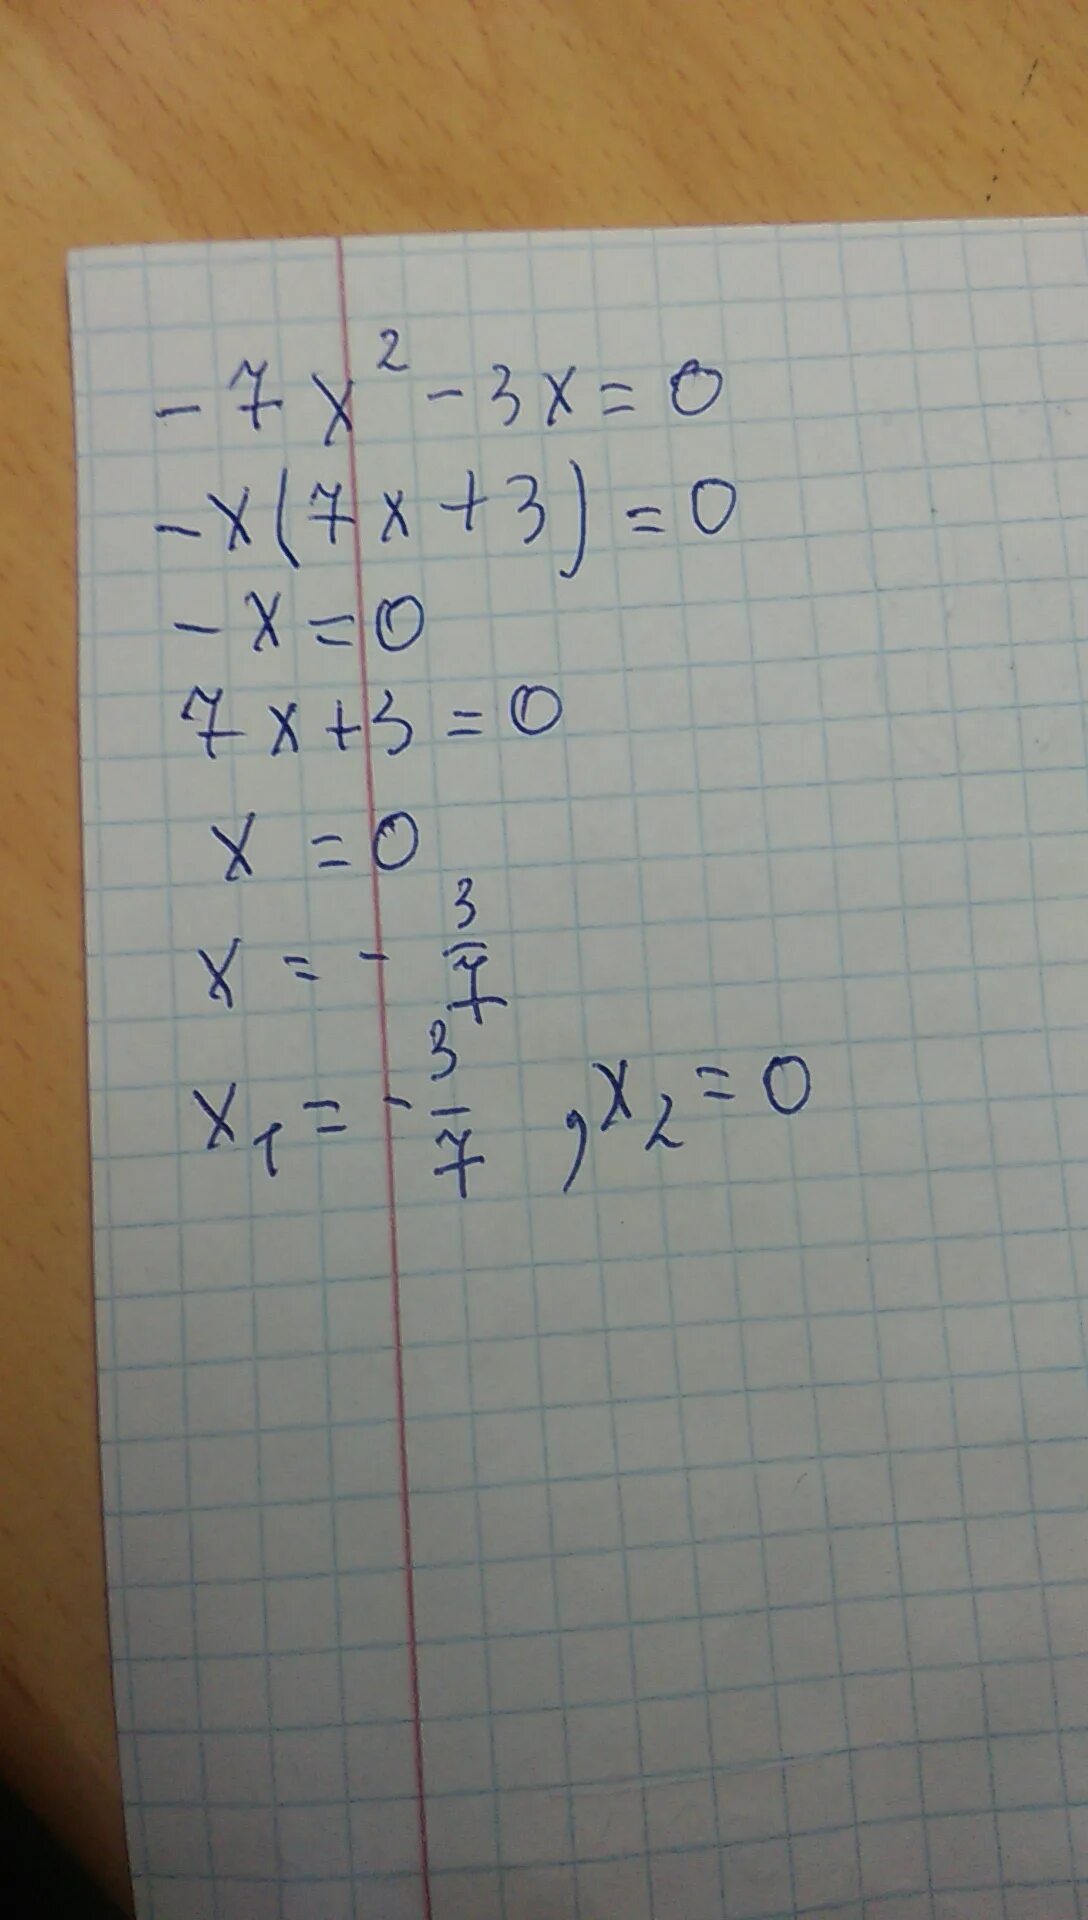 -7x² - 3x = 0
-x(7x + 3) = 0
-x = 0
7x + 3 = 0
x = 0
x = - 3/7
x₁ = - 3/7 , x₂ = 0